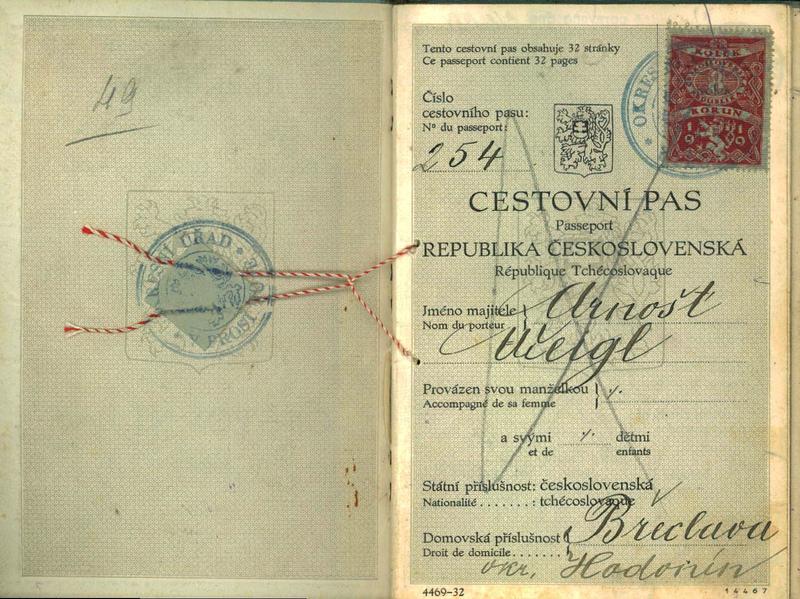 49
OKRESNÍ ÚŘAD
V PROST
Tento cestovní pas obsahuje 32 stránky
Ce passeport contient 32 pages
Číslo
cestovního pasu:
Nº du passeport:
254
KOLEK
KORUN
1919
CESTOVNÍ PAS
Passeport
REPUBLIKA ČESKOSLOVENSKÁ
République Tchécoslovaque
Jméno majitele
Nom du porteur
Arnošt
Weigl
Provázen svou manželkou
Accompagné de sa femme
a svými dětmi
et de enfants
Státní příslušnost: československá
Nationalité.......: tchécoslovaque
Domovská příslušnost
Droit de domicile.......
v Břeclavi
okr. Hodonín
4469-32
14467